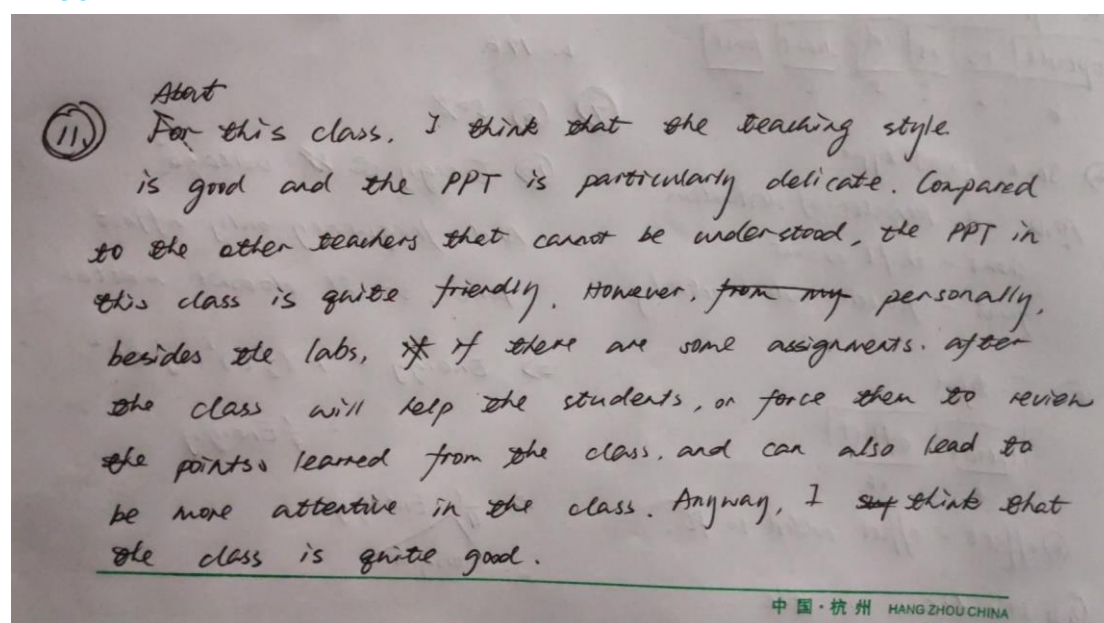 About
11. For this class. I think that the teaching style
is good and the PPT is particularly delicate. Compared
to the other teachers that cannot be understood, the PPT in
this class is quite friendly. However, from my personally,
besides the labs, if there are some assignments. after
the class will help the students, or force them to review
the points learned from the class, and can also lead to
be more attentive in the class. Anyway, I think that
the class is quite good.
中国·杭州 HANG ZHOU CHINA